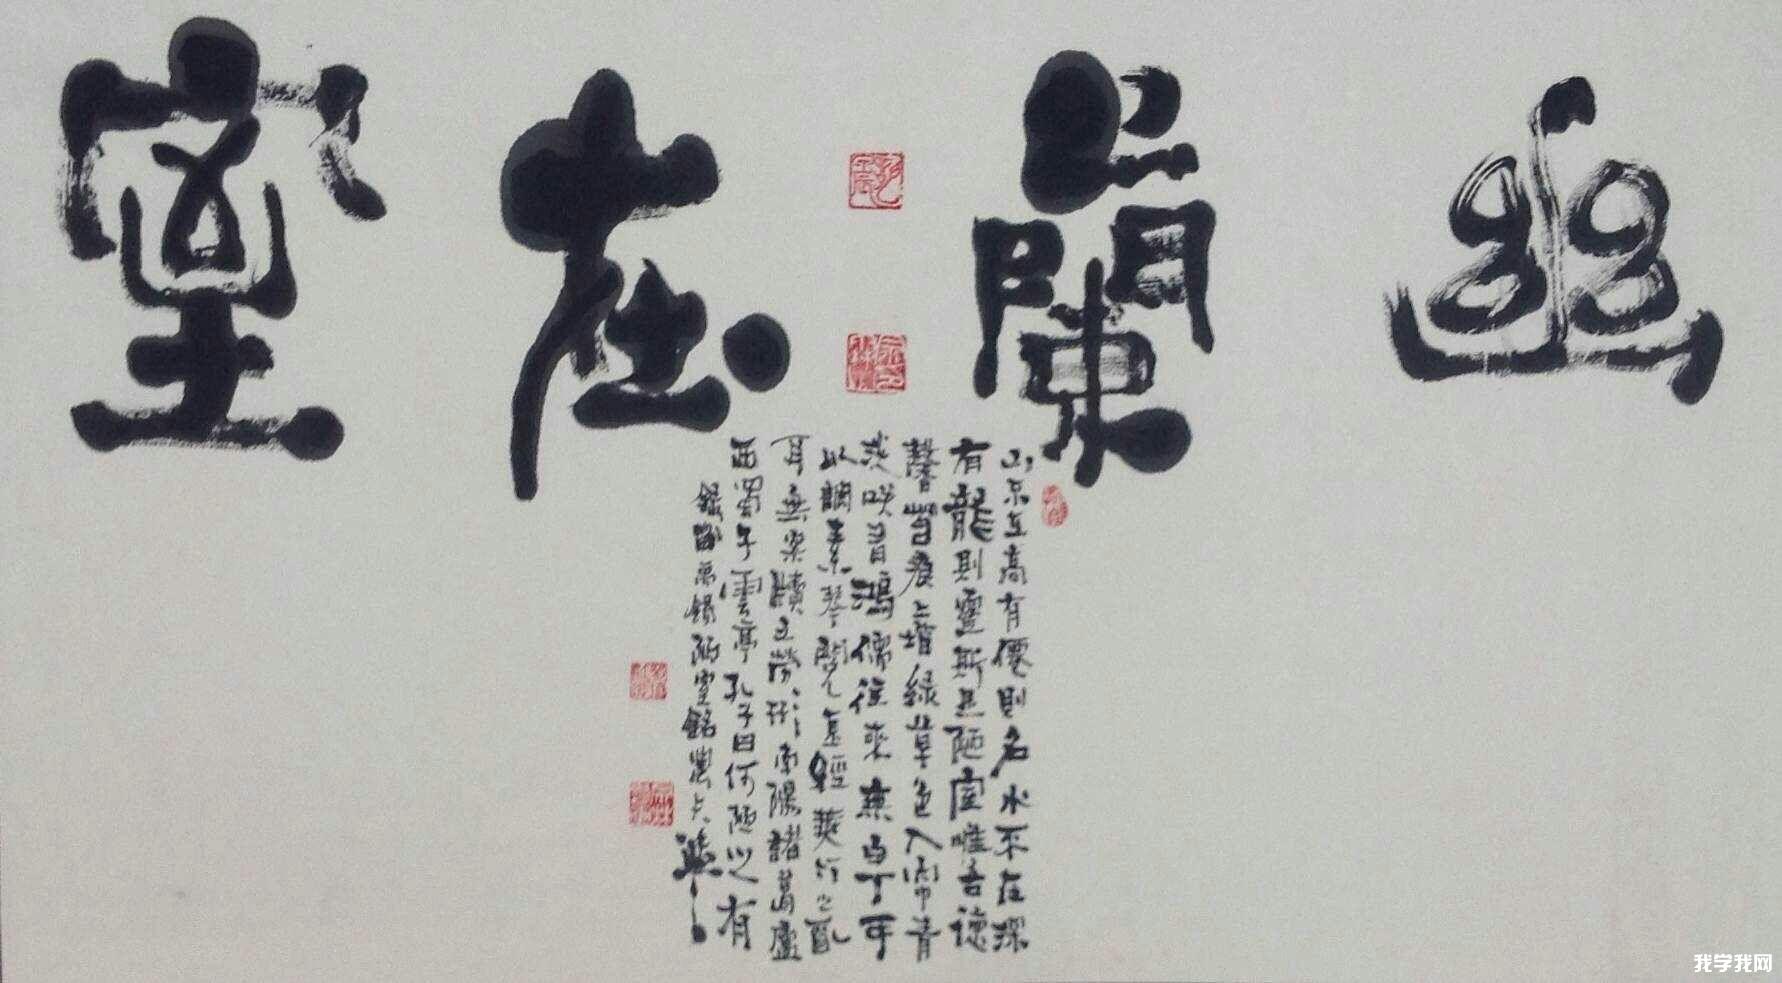 幽蘭在室
山不在高有僊則名水不在深
有龍則靈斯是陋室唯吾德
馨苔痕上堦綠草色入簾青
談咲有鴻儒往來無白丁可
以調素琴閱金經無竹之亂
耳無案牘之勞形南陽諸葛廬
西蜀子雲亭孔子曰何陋之有
錄劉禹錫陋室銘
我学我网